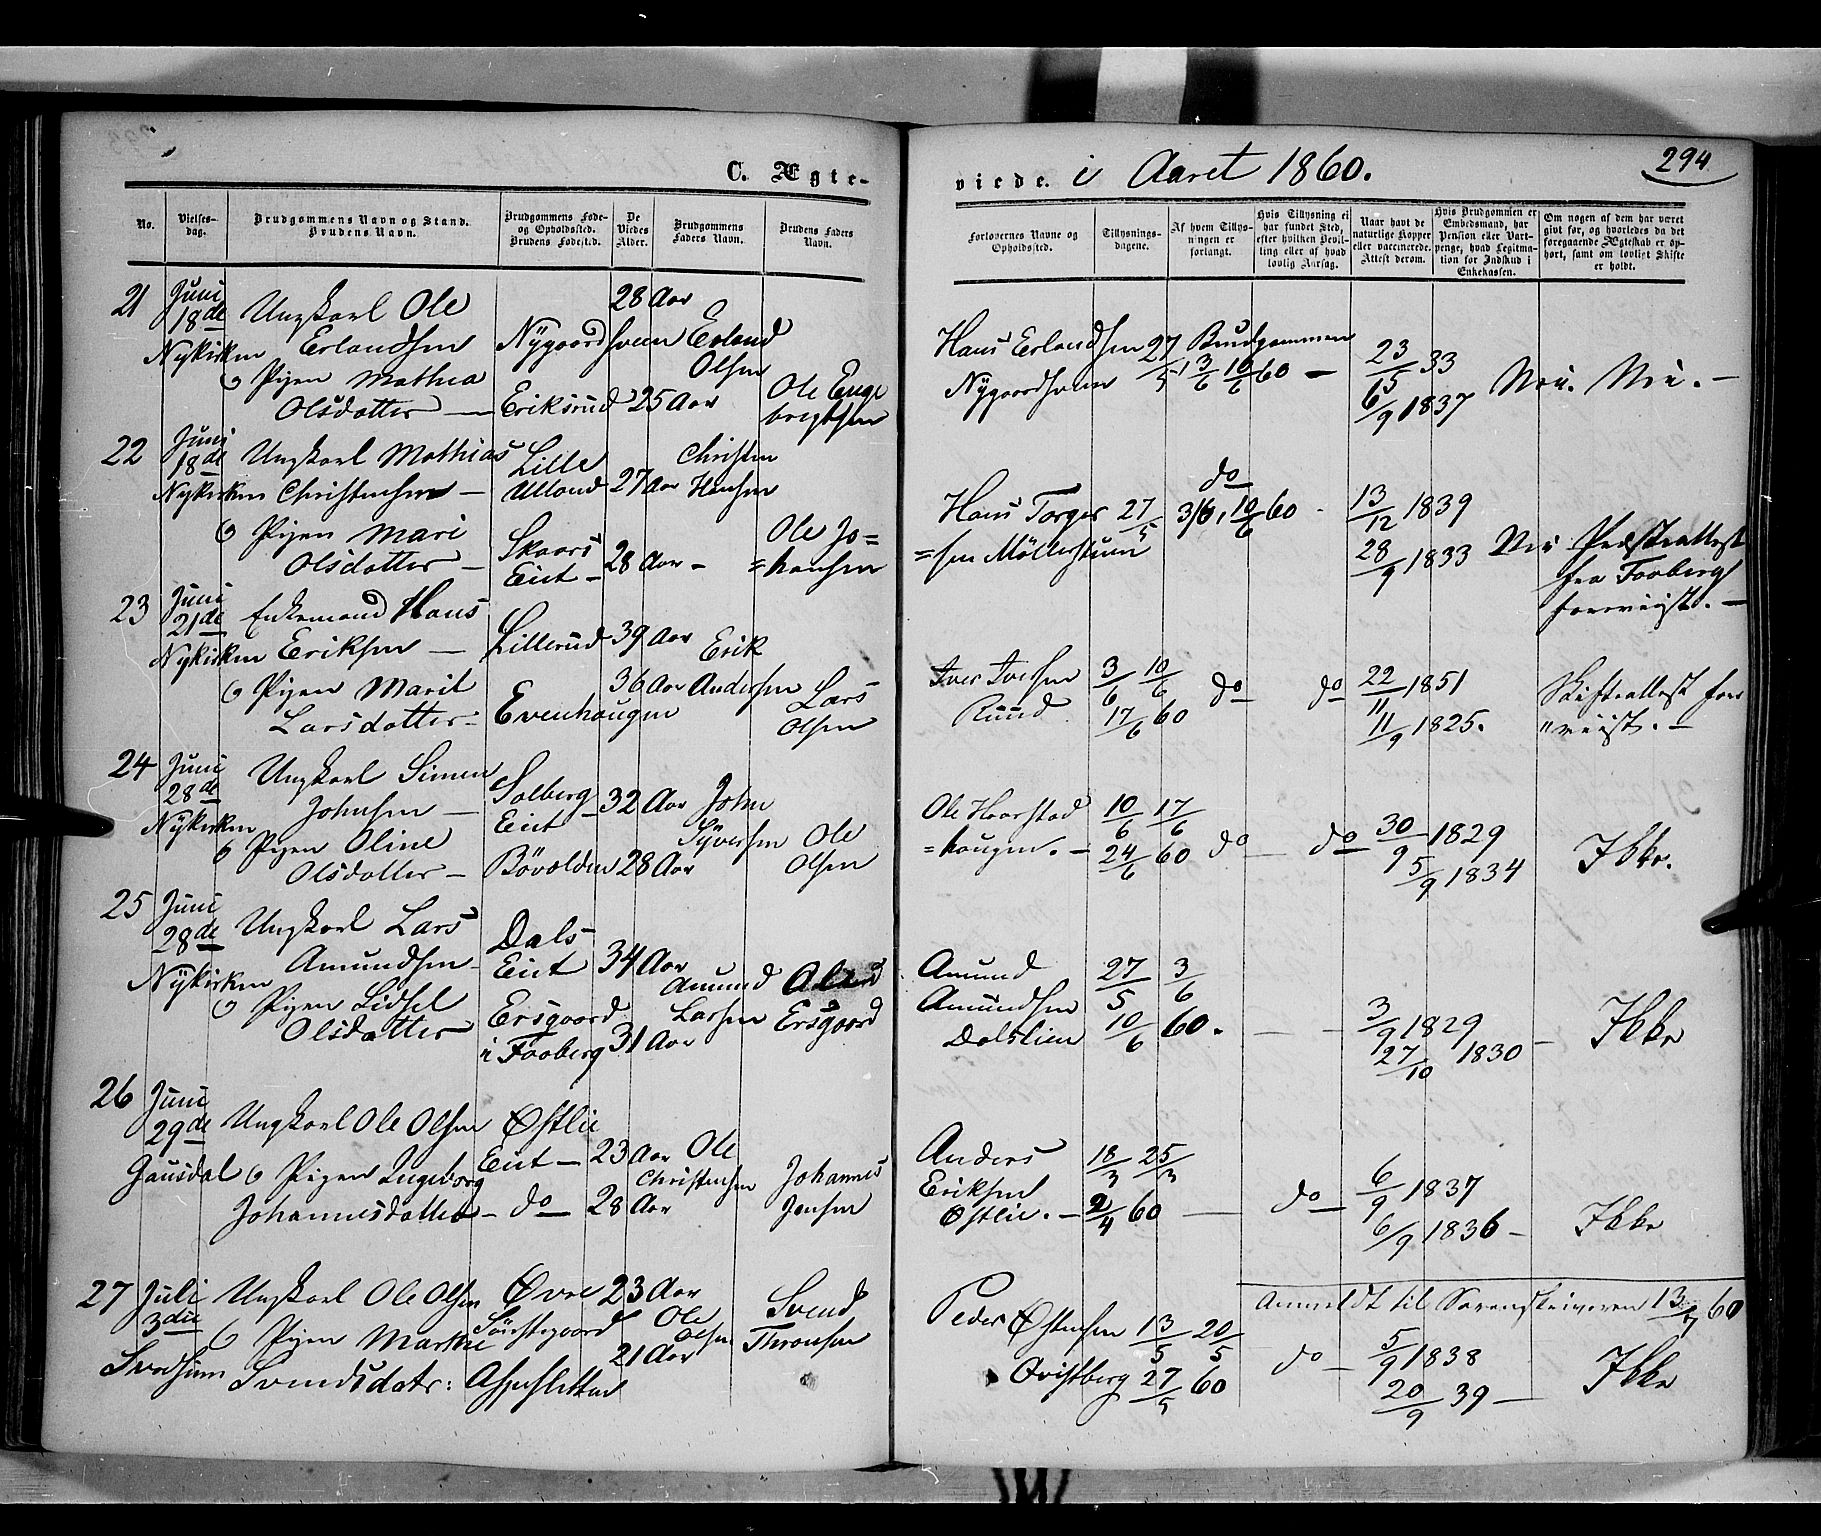 C. Ægte-
viede. i Aaret 1860.
294
No.
Vielses-
dag.
Brudgommens Navn og Stand.
Brudens Navn.
Brudgommens Føde-
og Opholdssted.
Brudens Fødested.
De
Viedes
Alder.
Brudgommens
Faders Navn.
Brudens Faders
Navn.
Forlovernes Navne og
Opholdssted.
Tillysnings-
dagene.
Af hvem Tillys-
ningen er
forlangt.
Hvis Tillysning ei
har fundet Sted,
efter hvilken Bevil-
ling eller af hvad
lovlig Aarsag.
Naar havt de
naturlige Kopper
eller vaccinerede.
Attest derom.
Hvis Brudgommen er
Embedsmand, har
Pension eller Vart-
penge, hvad Legitima-
tion for Indskud i
Enkekassen.
Om nogen af dem har været
givt før, og hvorledes da det
foregaaende Ægteskab er op-
hørt, samt om lovligt Skifte
er holdt.
21 Juni 18de Nykirken
Ungkarl Ole
Erlandsen
Nygaardsveen
28 Aar
Erland
Olsen
Pigen Mathea
Olsdatter
Eriksrud
25 Aar
Ole Enge
bregtsen
Hans Erlandsen
Nygaardsveen
27/5 3/6 10/6 60
Brudgommen
23/6 33
15/9 1837
Nei. Nei.
22 Juni 18de Nykirken
Ungkarl Mathias
Christensen
Lille
Ulland
27 Aar
Christen
Hansen
Pigen Mari
Olsdatter
Skaars
Eiet
28 Aar
Ole Jo=
=hansen
Hans Torger
=sen Möllerstuen
27/5 3/6, 10/6 60
do
13/12 1839
28/9 1833
Nei Præsteattest
fra Faaberg
foreviist.
23 Juni 21de Nykirken
Enkemand Hans
Eriksen
Lillerud
39 Aar
Erik
Andersen
Pigen Marit
Larsdatter
Evenhaugen
36 Aar
Lars
Olsen
Iver Iversen
Ruud
3/6 10/6
17/6 60
do do
22/11 1851
11/9 1825.
Skifteattest fore
"viist.
24 Juni 28de Nykirken
Ungkarl Simen
Johnsen
Solberg
Eiet
32 Aar
John
Syversen
Pigen Oline
Olsdatter
Bövolden
28 Aar
Ole
Olsen
Ole Haarstad
=haugen.
10/6 17/6
24/6 60
do do
30/9 1829
5/9 1834
Ikke.
25 Juni 28de Nykirken
Ungkarl Lars
Amundsen
Dals
Eiet
34 Aar
Amund
Larsen
Pigen Lidsel
Olsdatter
Ersgaard
i Faaberg
31 Aar
Ersgaard
Amund
Amundsen
Dalslien
27/5 3/6
10/6 60.
3/9 1829
27/10 1830
Ikke
26 Juni 29de Gausdal
Ungkarl Ole Olsen
Østlie
Eiet
23 Aar
Ole
Christensen
Pigen Ingeborg
Johannesdatter
do
28 Aar
Johannes
Jensen
Anders
Eriksen
Østlie.
18/3 25/3
2/4 60
do
6/9 1837
6/9 1836
Ikke
27 Juli 3die
Ungkarl Ole Olsen
Øvre
23 Aar
Ole
Olsen
Pigen Marthe
Svendsdatr:
Aspesletten
21 Aar
Svend
Thronsen
Peder Østensen
Qvistberg
13/5 20/5
27/5 60
Anmeldt til Sorenskriveren 13/7 60
do
5/9 1838
20/9 39
Ikke